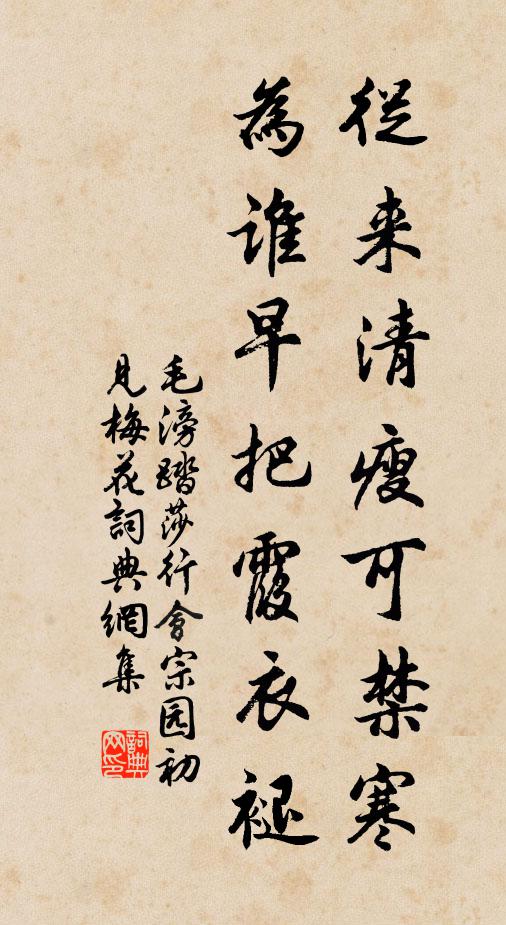 從来清瘦可禁寒
為誰早把霞衣褪
毛滂踏莎行會宗园初
見梅花詞典網集
詞典网印